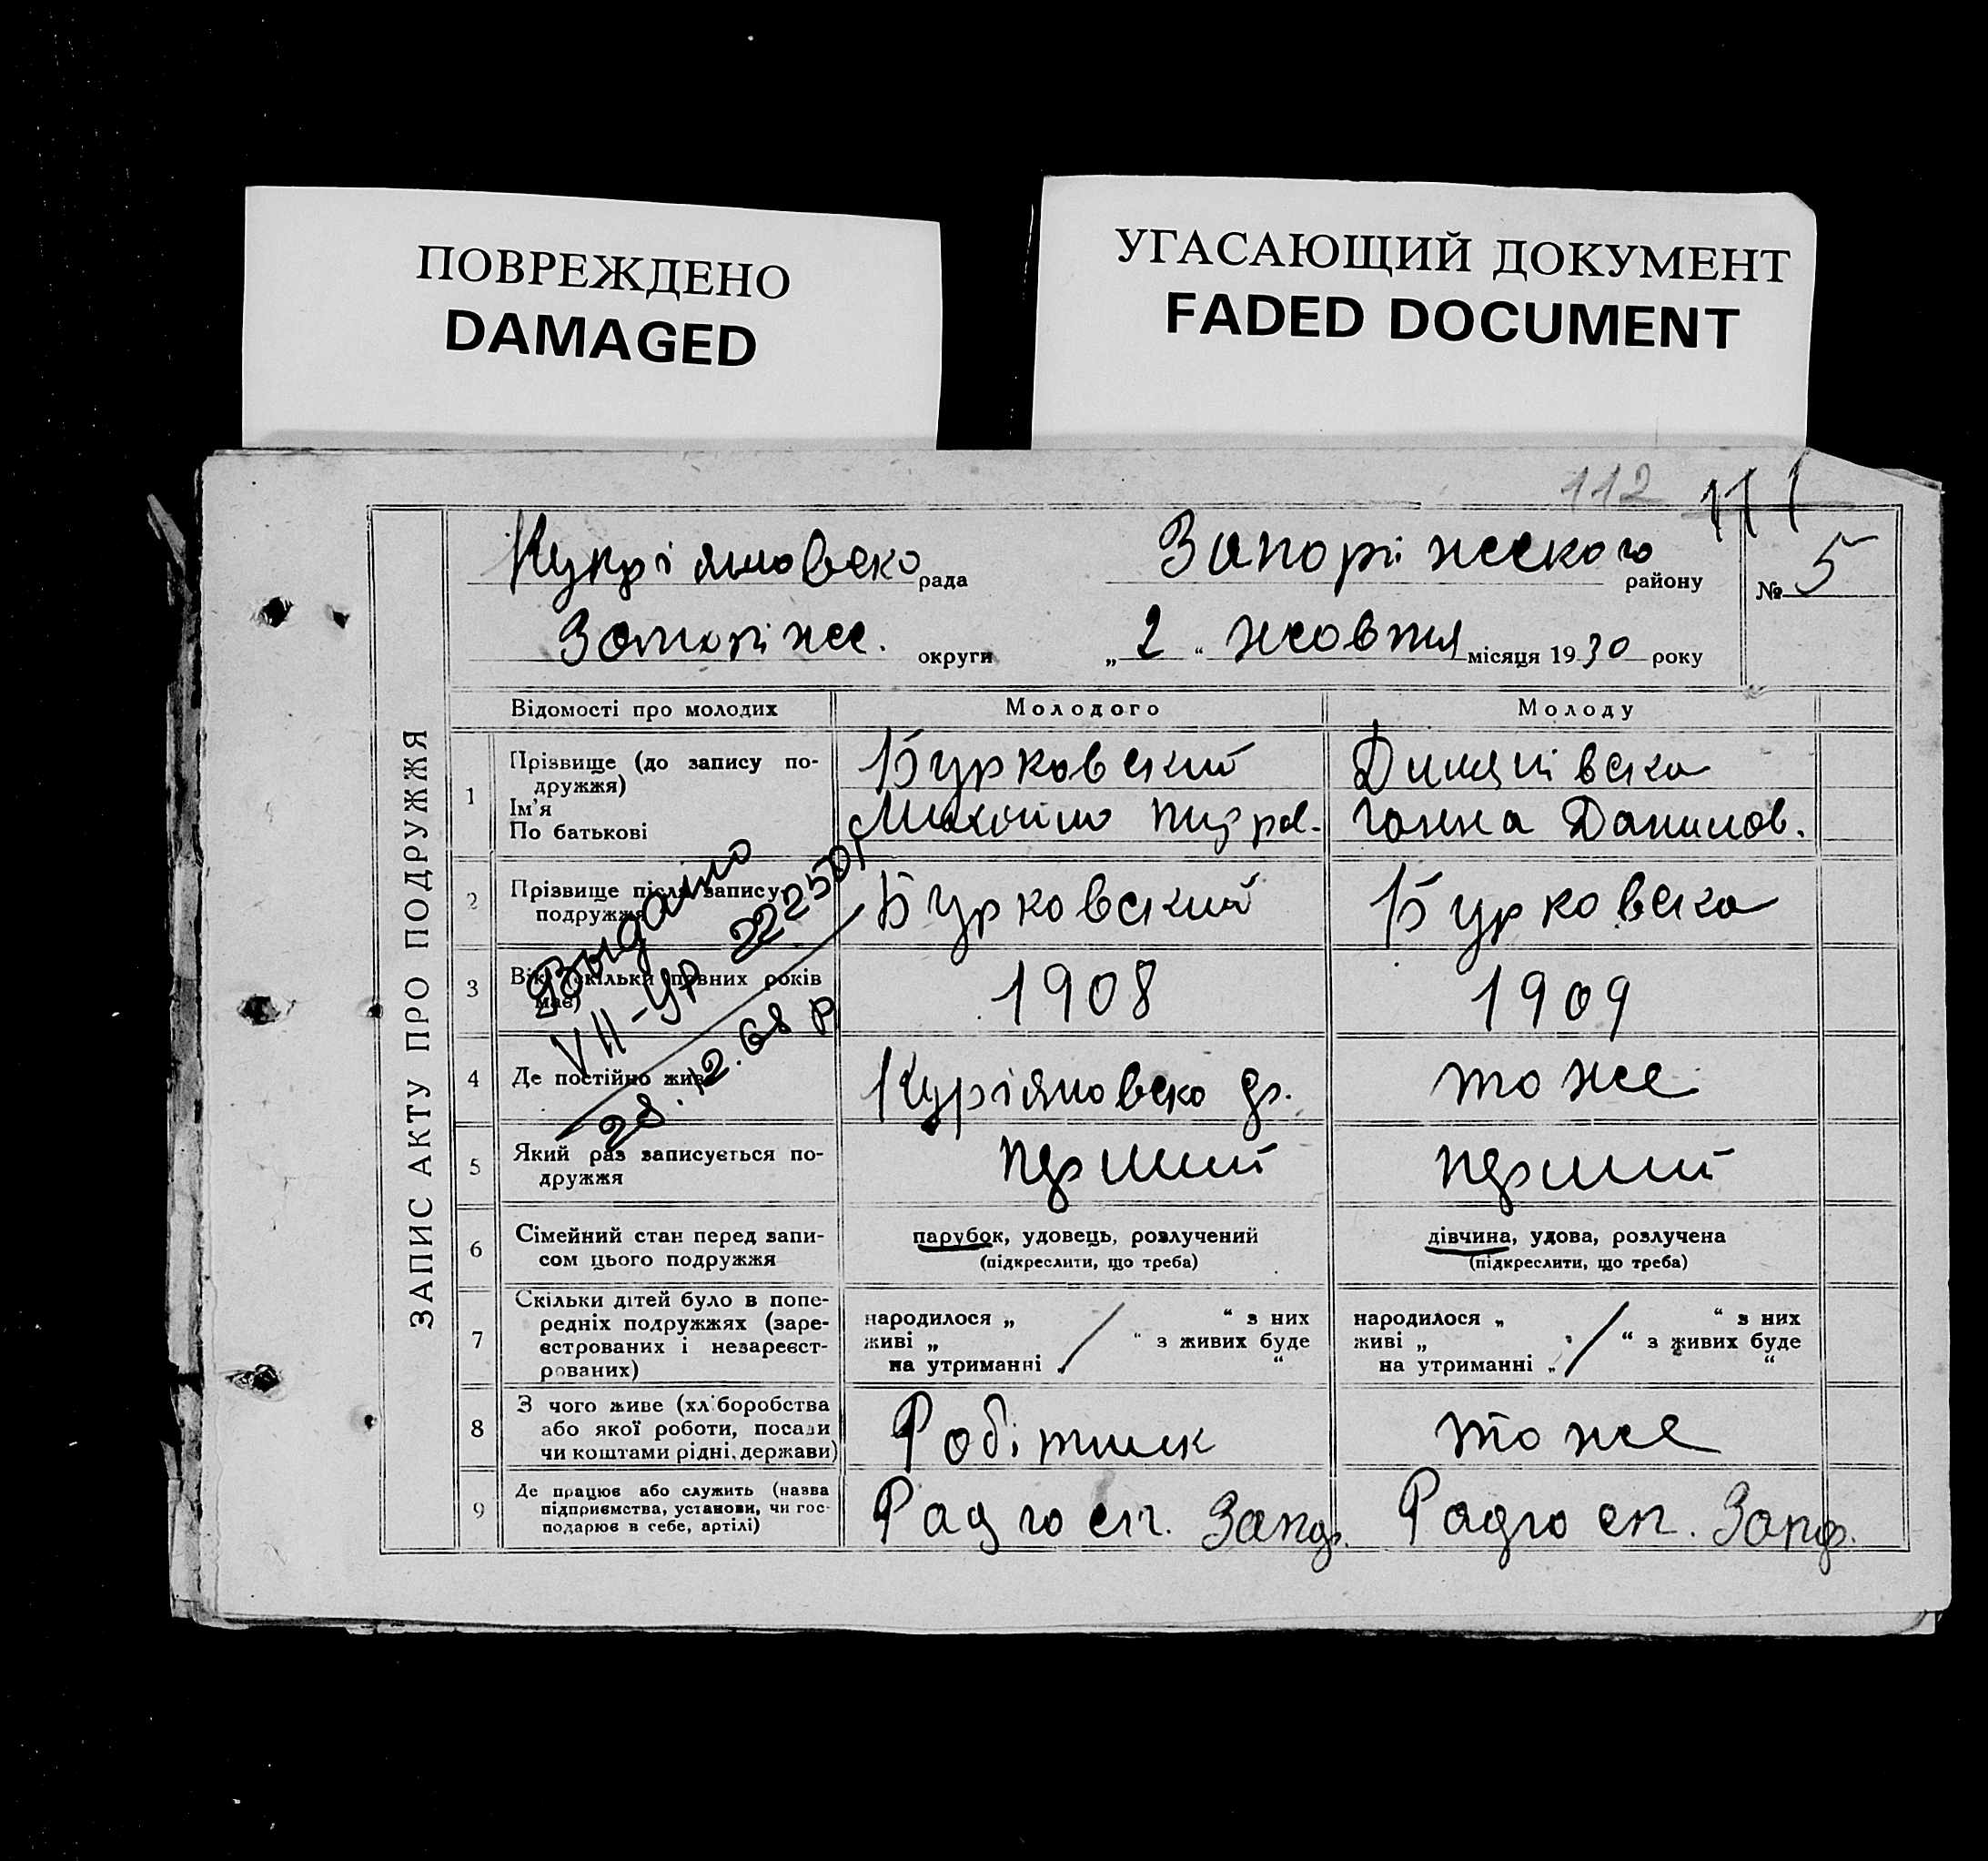 ПОВРЕЖДЕНО
DAMAGED
УГАСАЮЩИЙ ДОКУМЕНТ
FADED DOCUMENT
112 111
ЗАПИС АКТУ ПРО ПОДРУЖЖЯ
Купріяновська рада Запоріжського району № 5
Запоріж. округи „ 2 “ жовтня місяця 1930 року
Відомості про молодих Молодого Молоду
1 Прізвище (до запису подружжя) Бурковский
Ім'я
По батькові Михайло Ганна Данилов.
2 Прізвище після запису подружжя Бурковский Бурковска
3 Вік (скільки повних років має) 1908 1909
4 Де постійно живе то же
5 Який раз записується подружжя перший перший
6 Сімейний стан перед записом цього подружжя парубок, удовець, розлучений дівчина, удова, розлучена
(підкреслити, що треба) (підкреслити, що треба)
7 Скільки дітей було в попередніх подружжях (зареєстрованих і незареєстрованих)
народилося „ “ з них народилося „ “ з них
живі „ “ з живих буде живі „ “ з живих буде
на утриманні „ “ на утриманні „ “
8 З чого живе (хліборобства або якої роботи, посади чи коштами рідні, держави) Робітник то же
9 Де працює або служить (назва підприємства, установи, чи господарює в себе, артілі) Радгосп. Радгосп.
Выдано
VII-УР
28.12.68 р